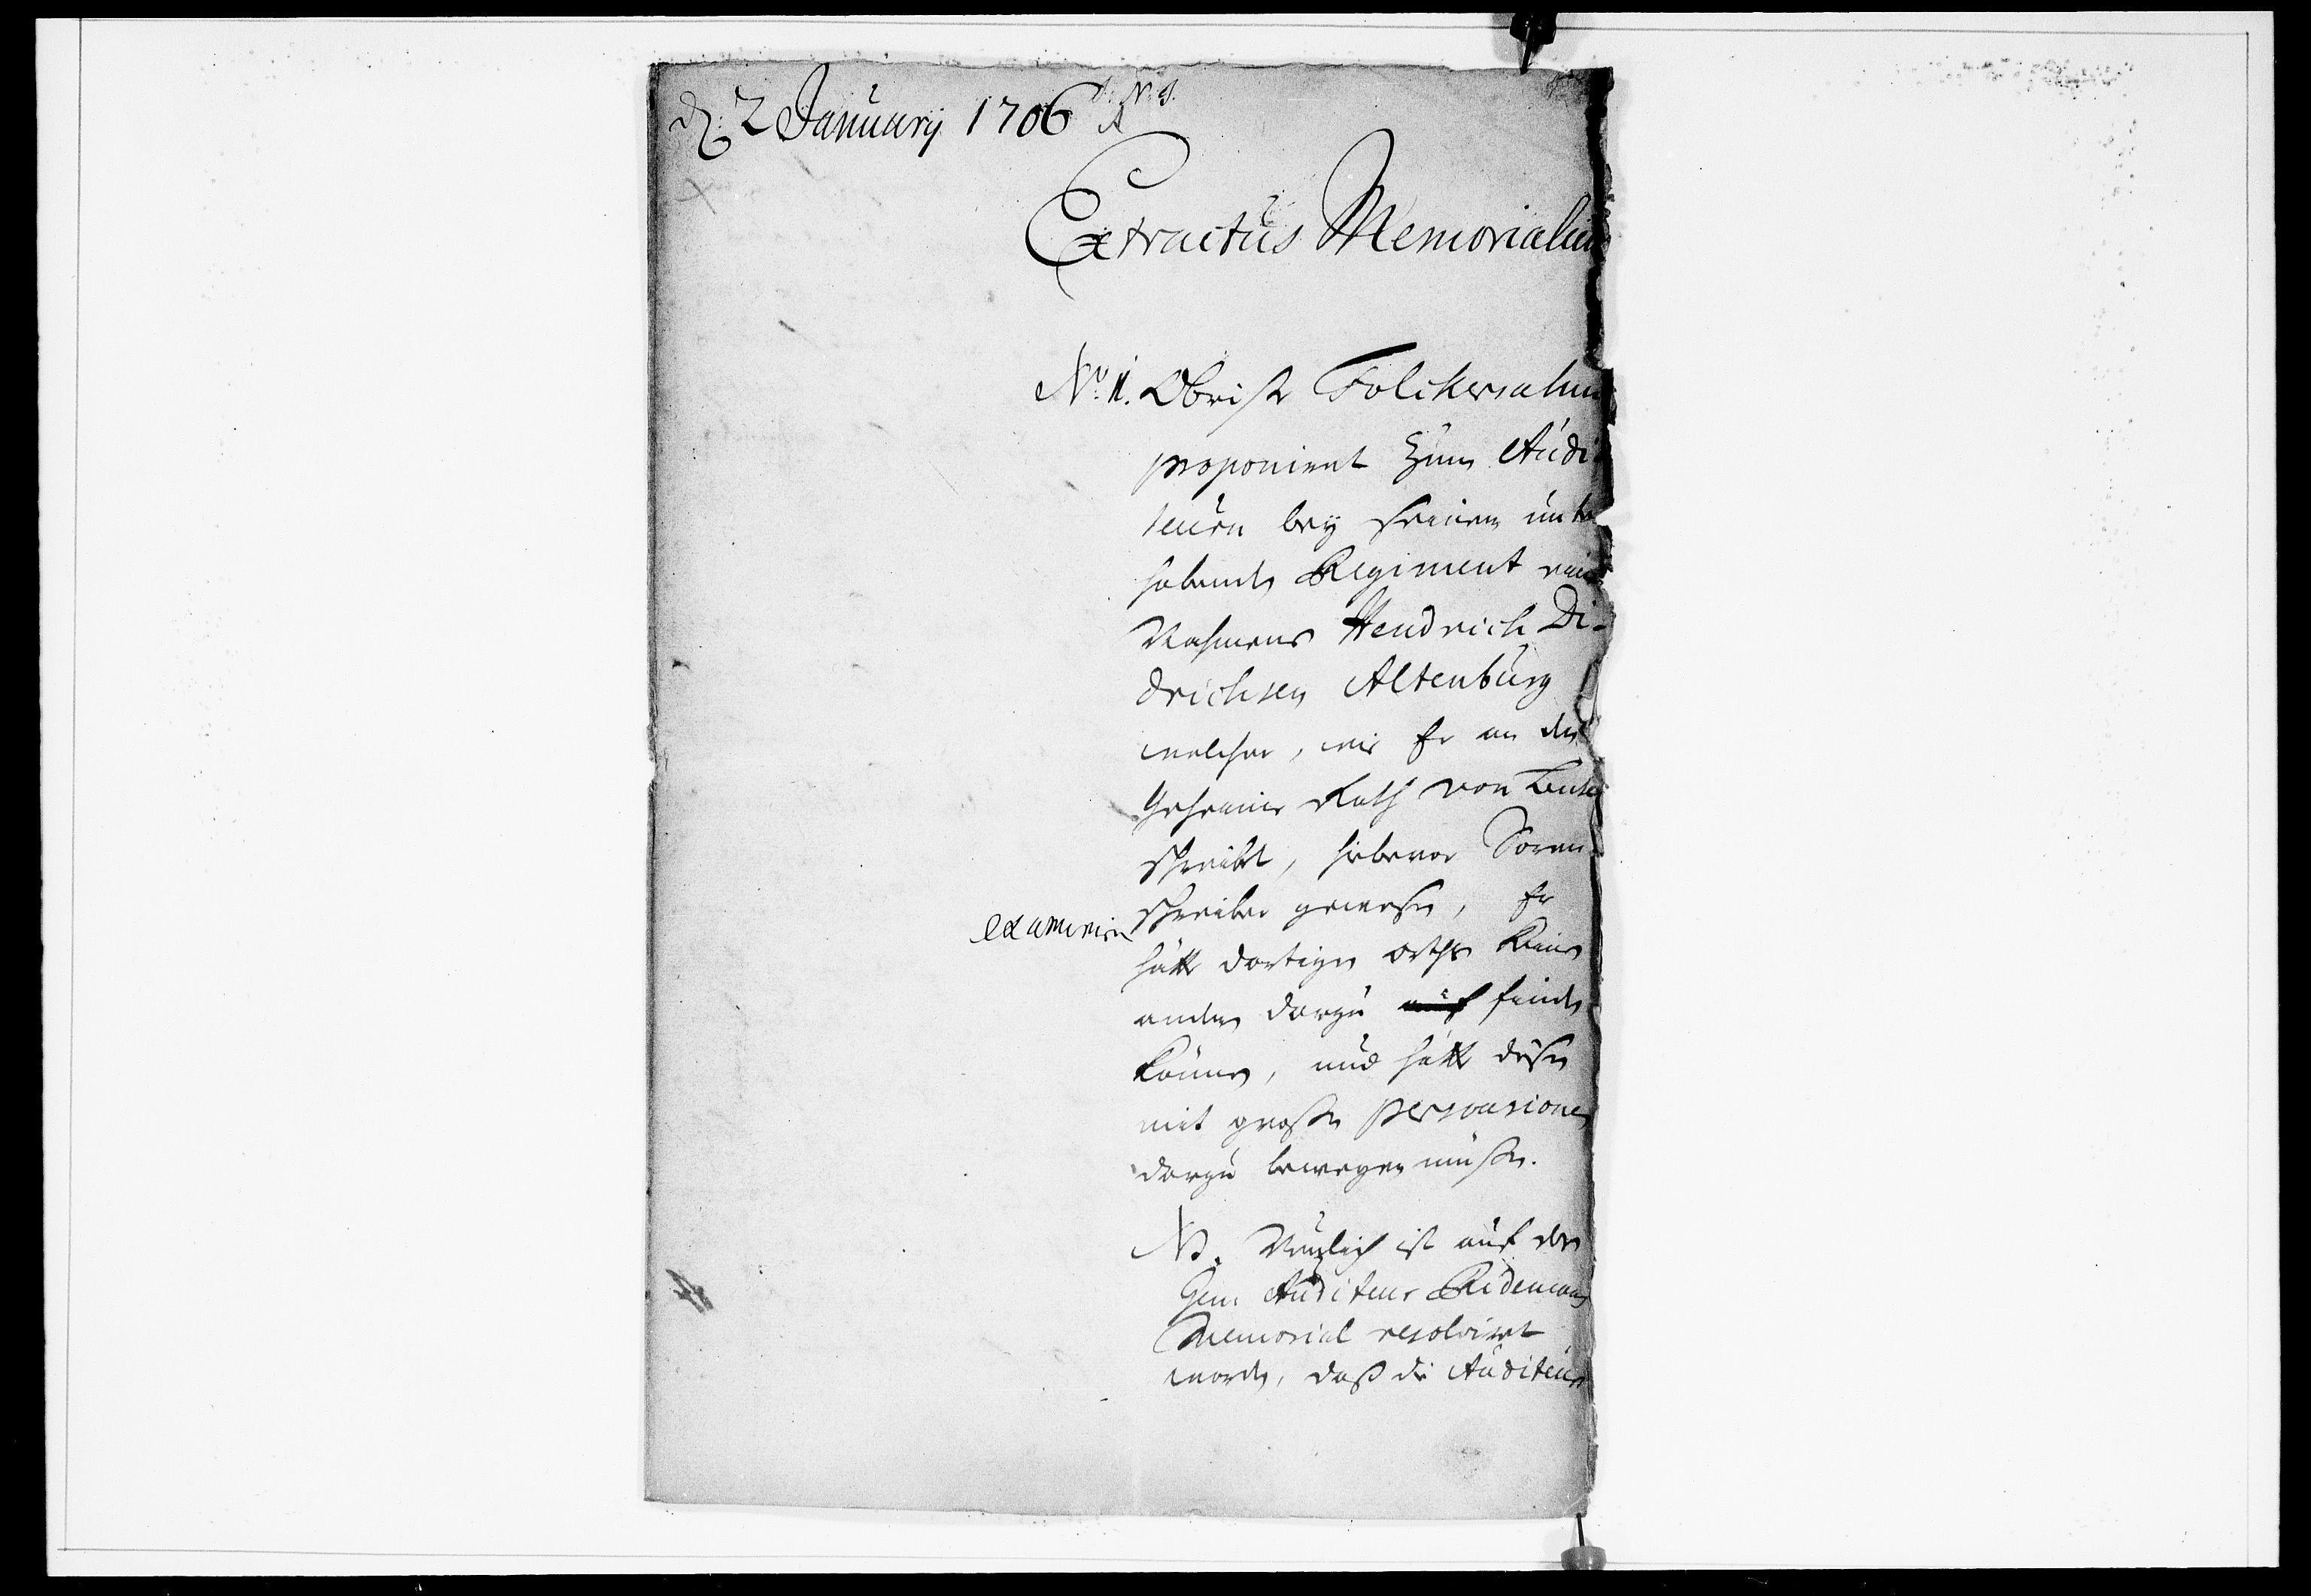 d. 2 January 1706
Extractus Memorialiu
No. 1. Obrist Folckersahm
proponirt zum Audi
teurn bey seinem unter
habenden Regiment einen
Nahmens Hendrich Di-
drichsen Altenburg
welcher, wie Er an den
Geheime Rath von
schreibt, hiebevor Soren
schreiber gewesen, Er
examiniren
hätte dortiger orths keinen
andern darzu finden
können, und hätte diesen
mit großen persvasionen
darzu bewegen müßen.
NB. Neulich ist auf des
Gen. Auditeur Ridemans
Memorial resolviret
worden, daß die Auditeurs